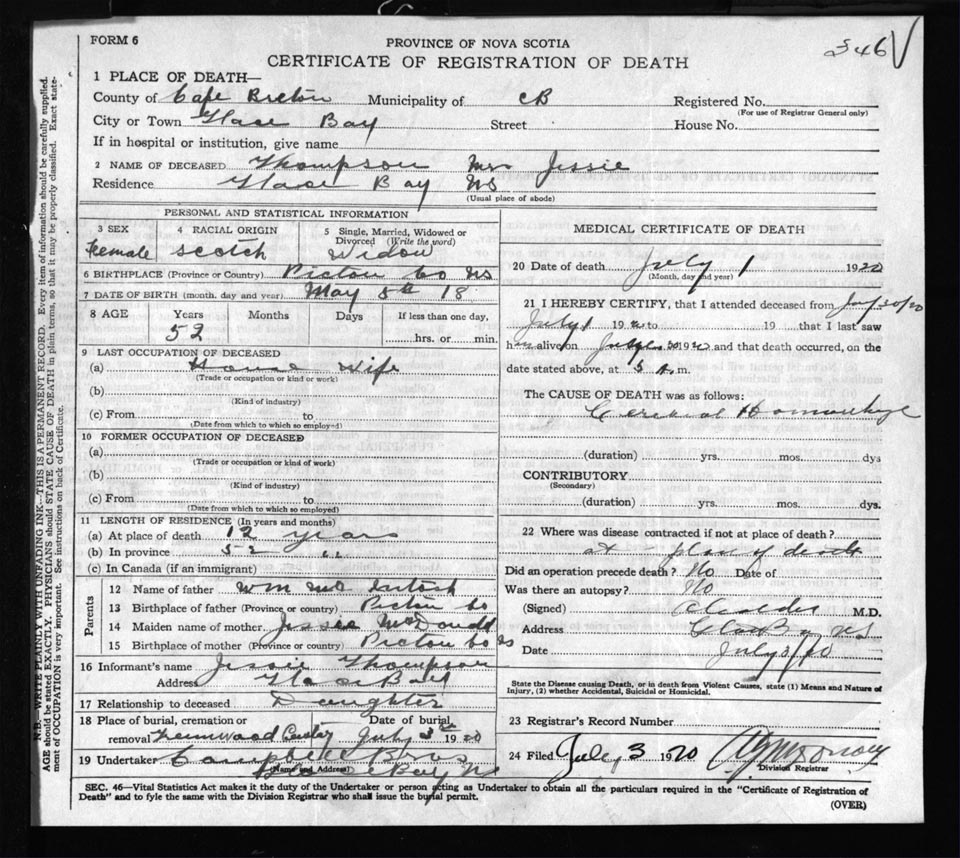 FORM 6
346
PROVINCE OF NOVA SCOTIA
CERTIFICATE OF REGISTRATION OF DEATH
N.B.—WRITE PLAINLY WITH UNFADING INK—THIS IS A PERMANENT RECORD. Every item of information should be carefully supplied.
AGE should be stated EXACTLY. PHYSICIANS should STATE CAUSE OF DEATH in plain terms, so that it may be properly classified. Exact state-
ment of OCCUPATION is very important. See instructions on back of Certificate.
1 PLACE OF DEATH—
County of Cape Breton Municipality of CB Registered No.
(For use of Registrar General only)
City or Town Glace Bay Street House No.
If in hospital or institution, give name
2 NAME OF DECEASED Thompson Mrs Jessie
Residence Glace Bay NS
(Usual place of abode)
PERSONAL AND STATISTICAL INFORMATION
3 SEX 4 RACIAL ORIGIN 5 Single, Married, Widowed or
Divorced (Write the word)
Female Scotch Widow
6 BIRTHPLACE (Province or Country) Pictou Co NS
7 DATE OF BIRTH (month, day and year) May 5th 18
8 AGE Years Months Days If less than one day,
52 hrs. or min.
9 LAST OCCUPATION OF DECEASED
(a) House Wife
(Trade or occupation or kind or work)
(b)
(Kind of industry)
(c) From to
(Date from which to which so employed)
10 FORMER OCCUPATION OF DECEASED
(a)
(Trade or occupation or kind of work)
(b)
(Kind of industry)
(c) From to
(Date from which to which so employed)
11 LENGTH OF RESIDENCE (In years and months)
(a) At place of death 12 years
(b) In province 52 "
(c) In Canada (if an immigrant)
Parents
12 Name of father Wm Mc Intosh
13 Birthplace of father (Province or country) Pictou Co
14 Maiden name of mother Jessie McDonald
15 Birthplace of mother (Province or country) Pictou Co NS
16 Informant's name Jessie Thompson
Address Glace Bay
17 Relationship to deceased Daughter
18 Place of burial, cremation or Date of burial
removal Greenwood July 3 1920
19 Undertaker Campbell Bros
(Name and Address) Glace Bay NS
MEDICAL CERTIFICATE OF DEATH
20 Date of death July 1 1920
(Month, day and year)
21 I HEREBY CERTIFY, that I attended deceased from
July 1 1920 to 19 that I last saw
her alive on 1920 and that death occurred, on the
date stated above, at 5 A.m.
The CAUSE OF DEATH was as follows:
Cerebral Hemorrhage
(duration) yrs. mos. dys
CONTRIBUTORY
(Secondary)
(duration) yrs. mos. dys.
22 Where was disease contracted if not at place of death?
at place of death
Did an operation precede death? No Date of
Was there an autopsy? No
(Signed) M.D.
Address Glace Bay NS
Date July 3/20
State the Disease causing Death, or in death from Violent Causes, state (1) Means and Nature of
Injury, (2) whether Accidental, Suicidal or Homicidal.
23 Registrar's Record Number
24 Filed July 3 1920
Division Registrar
SEC. 46—Vital Statistics Act makes it the duty of the Undertaker or person acting as Undertaker to obtain all the particulars required in the "Certificate of Registration of
Death" and to fyle the same with the Division Registrar who shall issue the burial permit.
(OVER)